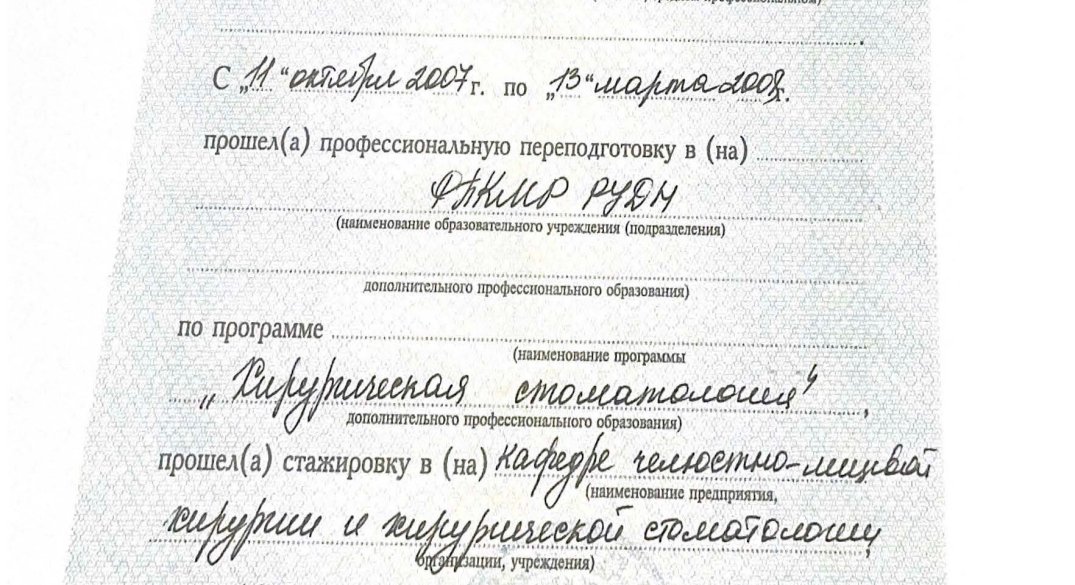 профессиональном)
С „11“ октября 2007 г. по „13“ марта 2008 г.
прошел(а) профессиональную переподготовку в (на)
ФПКМР РУДН
(наименование образовательного учреждения (подразделения)
дополнительного профессионального образования)
по программе
(наименование программы
„Хирургическая стоматология“,
дополнительного профессионального образования)
прошел(а) стажировку в (на) кафедре челюстно-лицевой
(наименование предприятия,
хирургии и хирургической стоматологии
организации, учреждения)